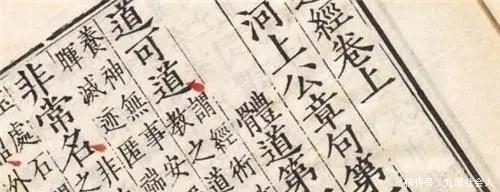 經卷上
河上公章句第
體道第
道可道
謂經術
教之道
養神無事安
暉滅迹匿端
非常名
非
處石
外